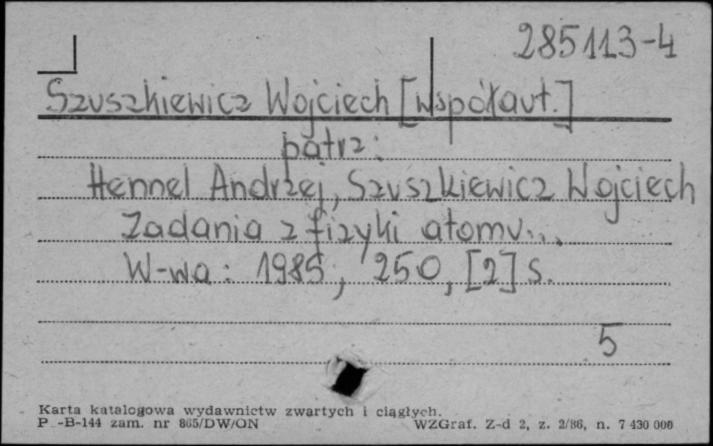 285113-4
Szuszkiewicz Wojciech [współaut.]
patrz:
Hennel Andrzej, Szuszkiewicz Wojciech
Zadania z fizyki atomu...
W-wa: 1985, 250, [2] s.
5
Karta katalogowa wydawnictw zwartych i ciągłych.
P -B-144 zam. nr 865/DW/ON WZGraf. Z-d 2, z. 2/86, n. 7 430 000